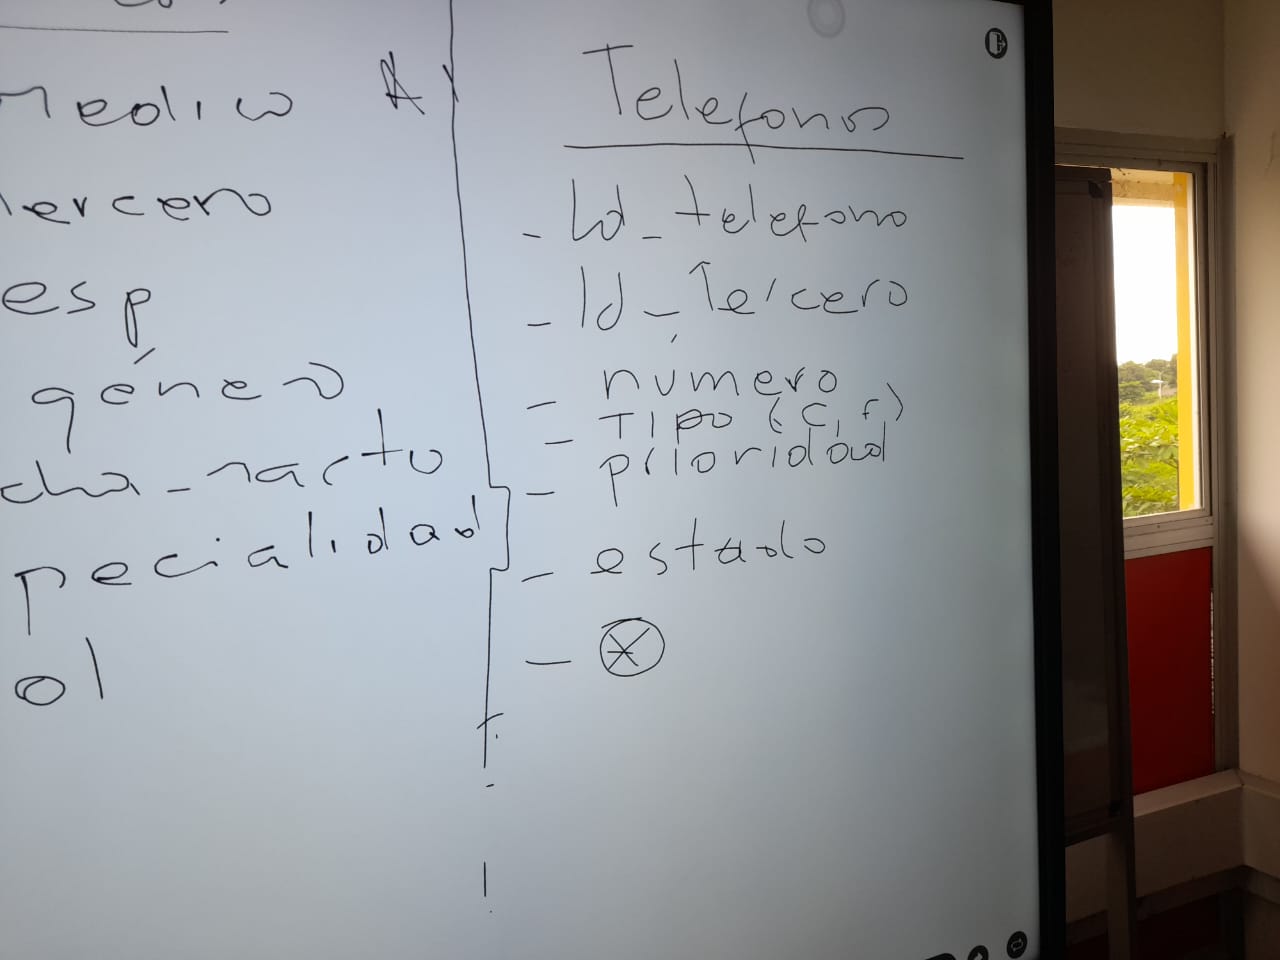 Medico AI
tercero
esp
género
cha_nacto
pecialidad
ol
Telefonos
- Id_telefono
- Id_Tercero
- número
- TIPO (C, F)
- prioridad
- estado
- *